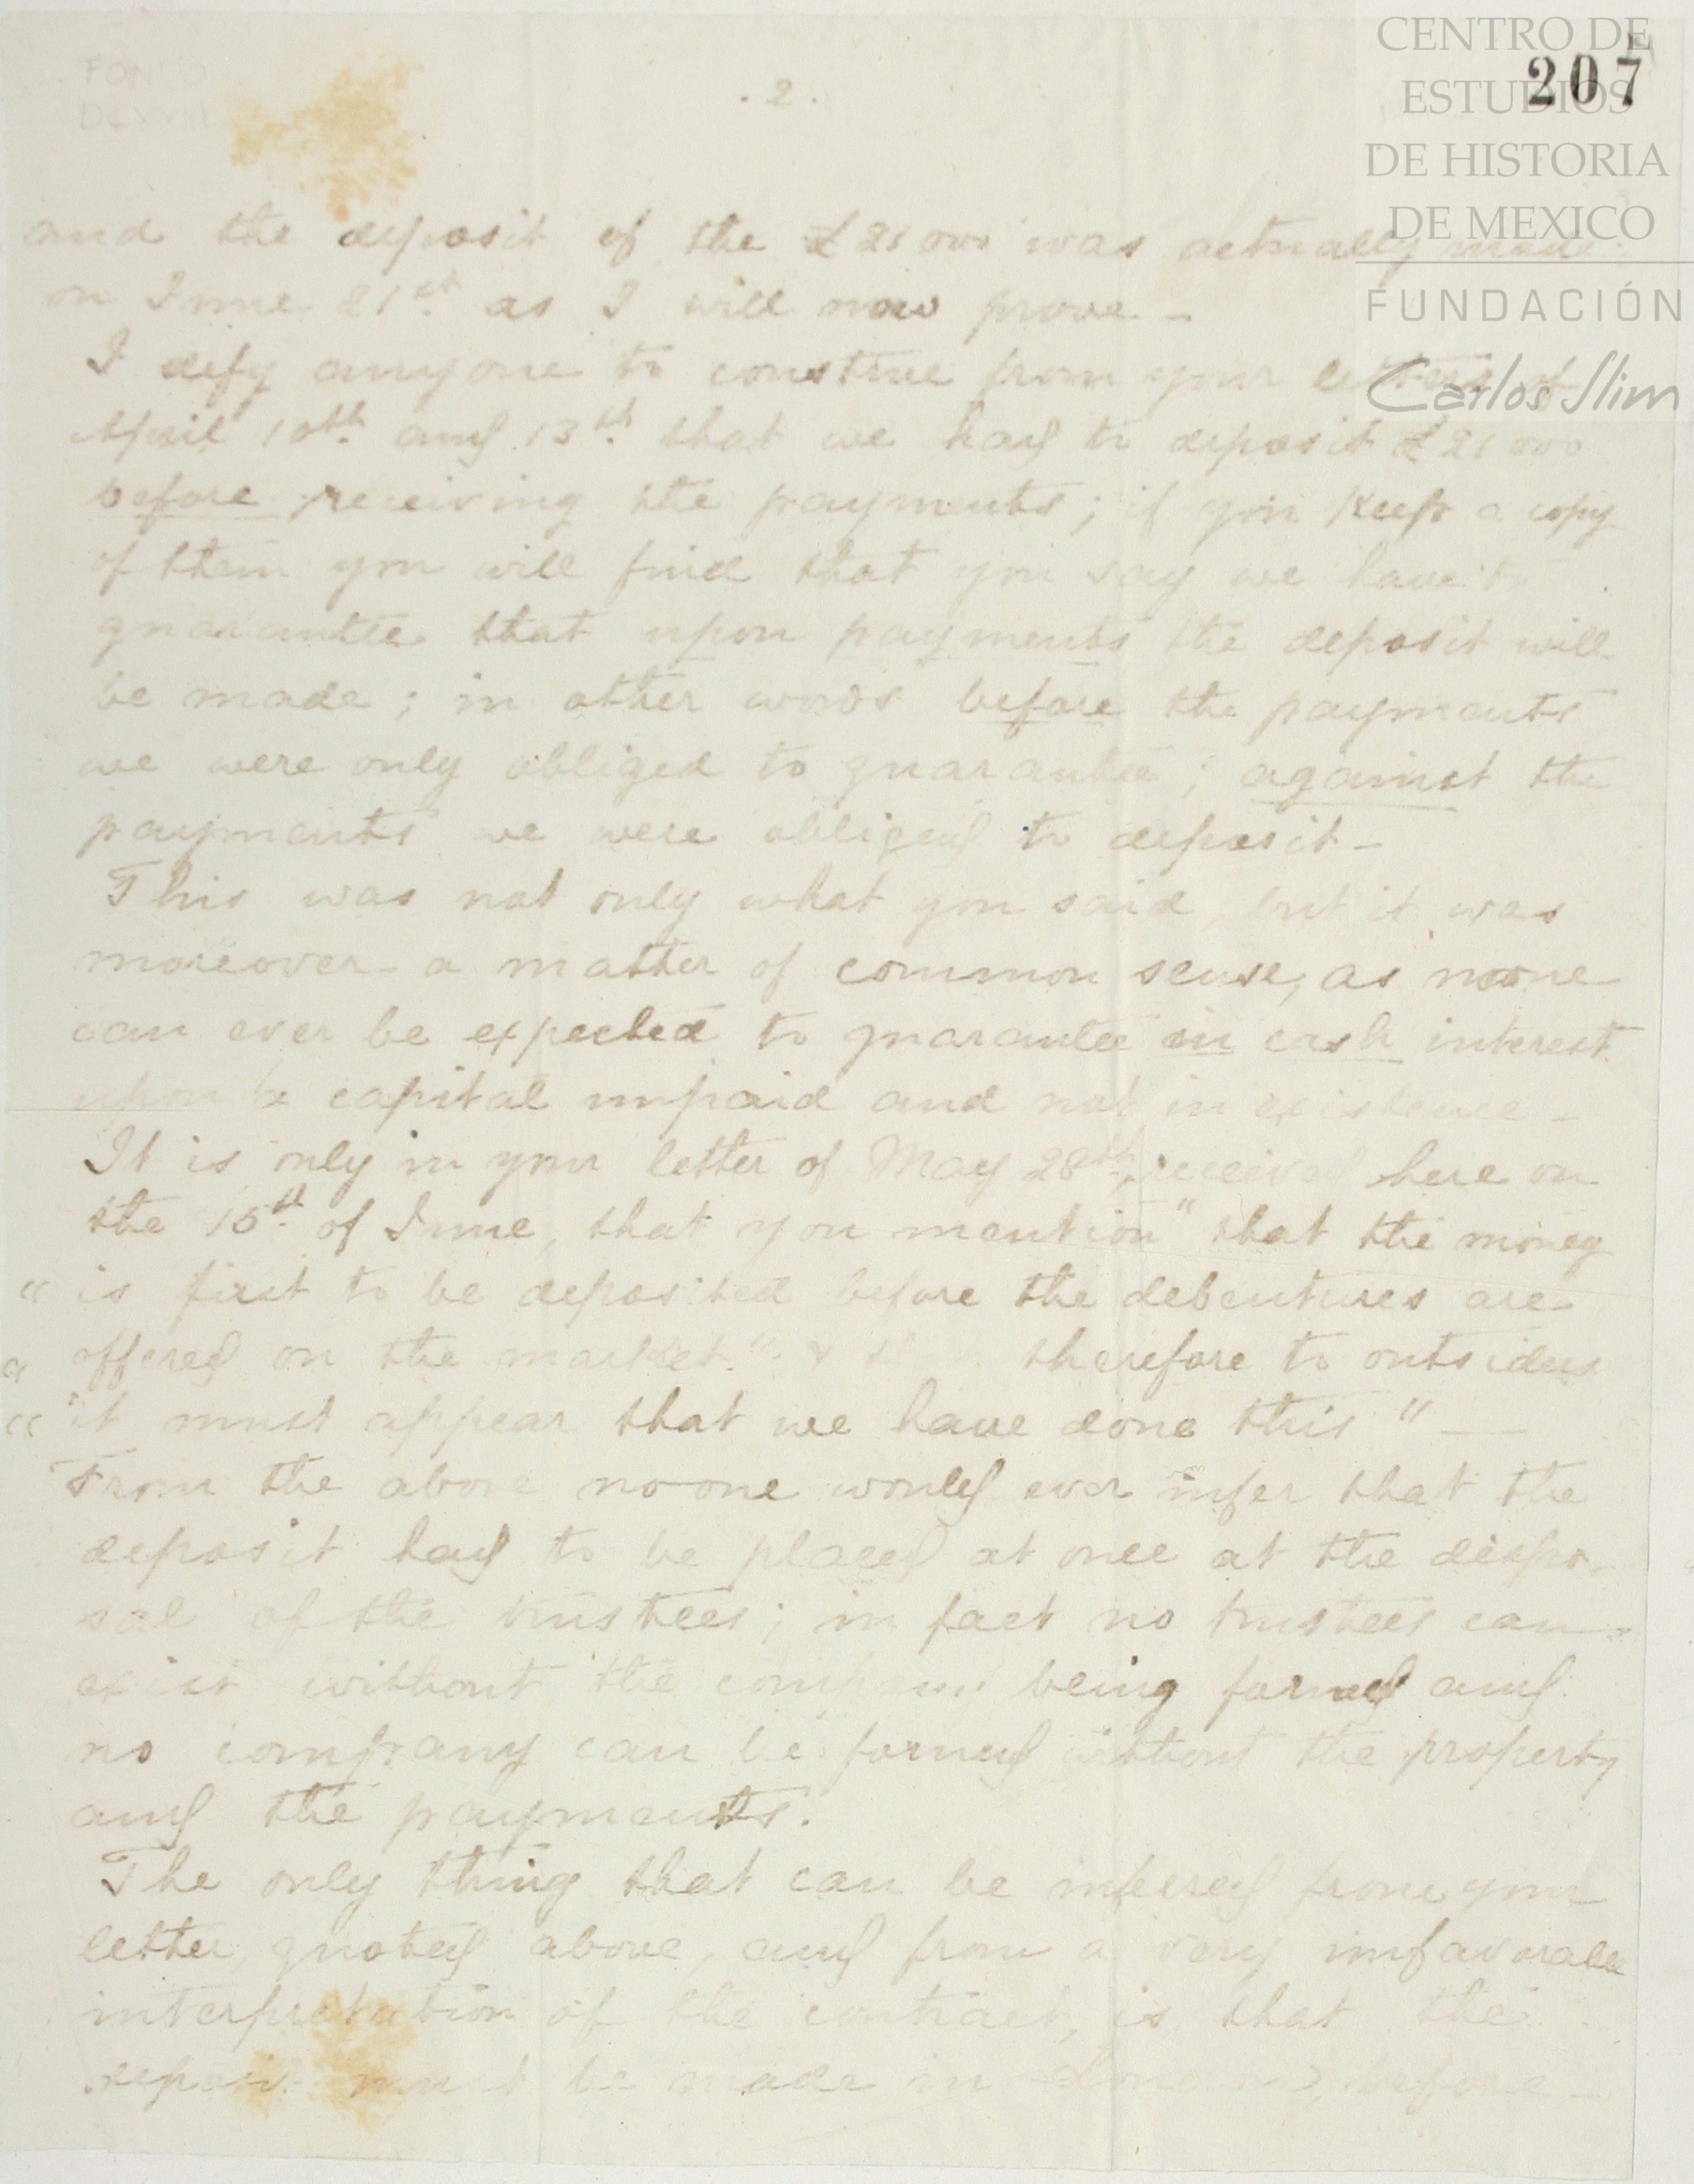 FONDO
DCXVIII
. 2 .
207
CENTRO DE
ESTUDIOS
DE HISTORIA
DE MEXICO
FUNDACIÓN
Carlos Slim
and the deposit of the £21000 was actually made
on June 21st as I will now prove –
I defy anyone to construe from your letters of
April 10th and 13th that we had to deposit £21000
before receiving the payments; if you keep a copy
of them you will find that you say we have to
guarantee that upon payments the deposit will
be made; in other words before the payments
we were only obliged to guarantee; against the
payments we were obliged to deposit –
This was not only what you said, but it was
moreover a matter of common sense, as noone
can ever be expected to guarantee in cash interest
upon a capital unpaid and not in existence –
It is only in your letter of May 28th, received here on
the 15th of June, that you mention "that the money
" is first to be deposited before the debentures are
" offered on the market." & therefore to outsiders
" "it must appear that we have done this" —
From the above no-one would ever infer that the
deposit had to be placed at once at the dispo-
sal of the trustees; in fact no trustees can
exist without the company being formed and
no company can be formed without the property
and the payments.
The only thing that can be infered from your
letter, quoted above, and from a very unfavorable
interpretation of the contract, is that the
deposit must be made in London, before –